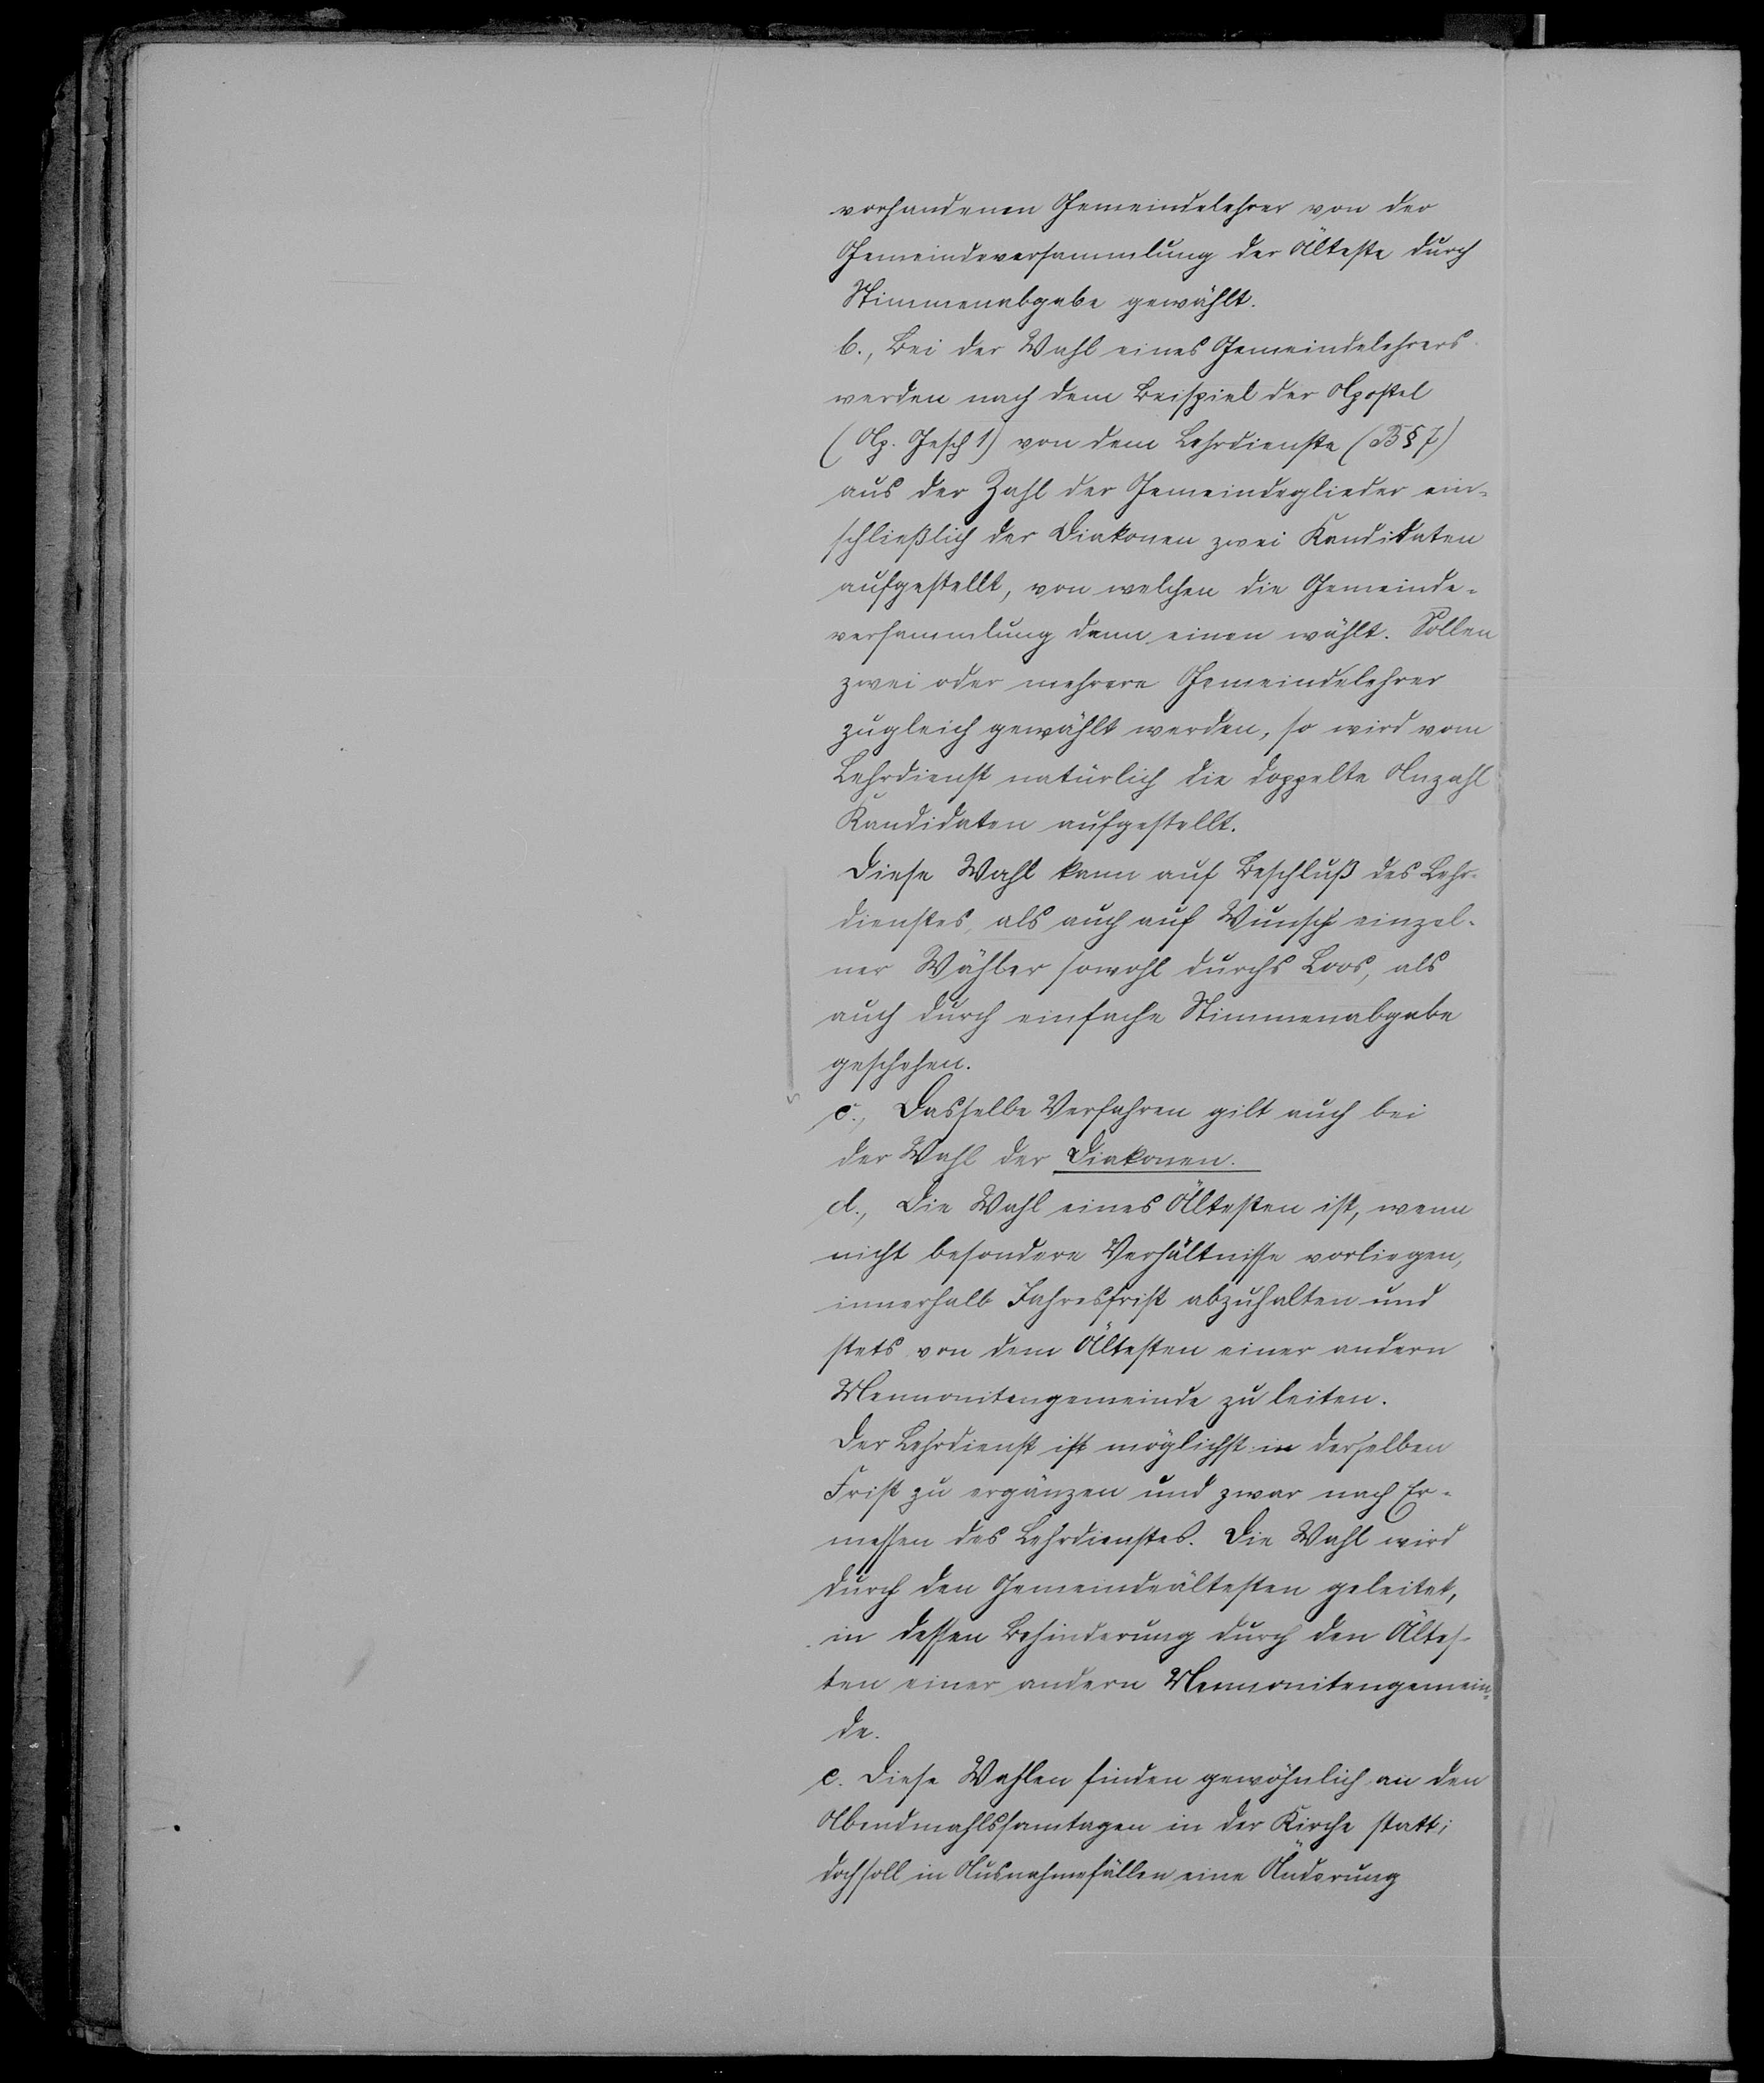 vorhandenen Gemeindelehrer von der
Gemeindeversammlung der Älteste durch
Stimmenabgabe gewählt.
b., Bei der Wahl eines Gemeindelehrers
werden nach dem Beispiel der Apostel
(Ap. Gesch 1) von dem Lehrdienste (B § 7)
aus der Zahl der Gemeindeglieder ein-
schließlich der Diakonen zwei Kandidaten
aufgestellt, von welchen die Gemeinde-
versammlung dann einen wählt. Sollen
zwei oder mehrere Gemeindelehrer
zugleich gewählt werden, so wird vom
Lehrdienst natürlich die doppelte Anzahl
Kandidaten aufgestellt.
Diese Wahl kann auf Beschluß des Lehr-
dienstes, als auch auf Wunsch einzel-
ner Wähler sowohl durchs Loos, als
auch durch einfache Stimmenabgabe
geschehen.
c., Dasselbe Verfahren gilt auch bei
der Wahl der Diakonen.
d., Die Wahl eines Ältesten ist, wenn
nicht besondere Verhältnisse vorliegen,
innerhalb Jahresfrist abzuhalten und
stets von dem Ältesten einer andern
Mennonitengemeinde zu leiten.
Der Lehrdienst ist möglichst in derselben
Frist zu ergänzen und zwar nach Er-
messen des Lehrdienstes. Die Wahl wird
durch den Gemeindeältesten geleitet,
in dessen Behinderung durch den Ältes-
ten einer andern Mennonitengemein-
de.
e. Diese Wahlen finden gewöhnlich an den
Abendmahlssamtagen in der Kirche statt;
doch soll in Ausnahmefällen eine Änderung